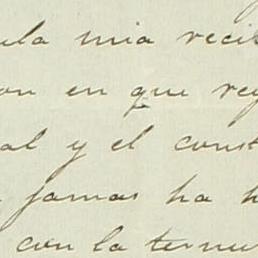 ula mia reci
on en que re
al y el const
jamas ha h
con la ternu